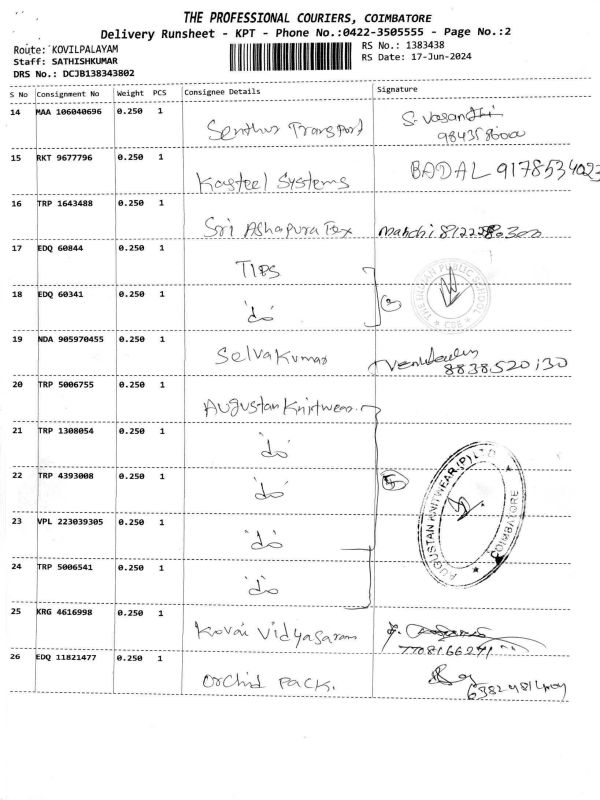 THE PROFESSIONAL COURIERS, COIMBATORE
Delivery Runsheet - KPT - Phone No.:0422-3505555 - Page No.:2
Route: KOVILPALAYAM
RS No.: 1383438
Staff: SATHISHKUMAR
RS Date: 17-Jun-2024
DRS No.: DCJB138343802
S No Consignment No Weight PCS Consignee Details Signature
14 MAA 106040696 0.250 1 Senthur Transport S. Vasanthi
15 RKT 9677796 0.250 1 Kasteel Systems BADAL
16 TRP 1643488 0.250 1 Sri Ashapura Tex
17 EDQ 60844 0.250 1 TIPS
THE INDIAN PUBLIC SCHOOL
CBE
18 EDQ 60341 0.250 1 "do"
19 NDA 905970455 0.250 1 Selvakumar
8838520130
20 TRP 5006755 0.250 1 Augustan Knitwear
21 TRP 1308054 0.250 1 "do"
22 TRP 4393008 0.250 1 "do" 5
AUGUSTAN KNITWEAR (P) LTD
COIMBATORE
23 VPL 223039305 0.250 1 "do"
24 TRP 5006541 0.250 1 "do"
25 KRG 4616998 0.250 1 Kovai Vidyasaram
7708166271
26 EDQ 11821477 0.250 1 Orchid Pack.